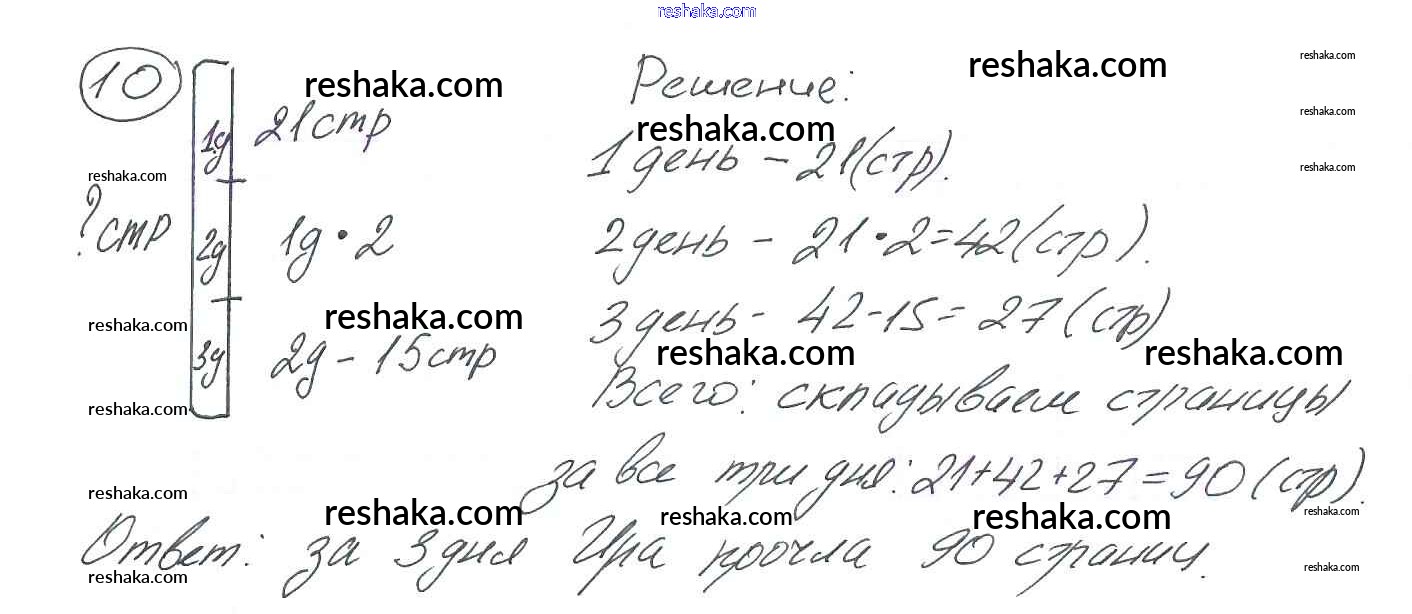 reshaka.com
10
reshaka.com
Решение:
reshaka.com
reshaka.com
1д 21 стр
reshaka.com
reshaka.com
1 день - 21 (стр).
reshaka.com
reshaka.com
? стр
2д 1д · 2
2 день - 21 · 2 = 42 (стр).
reshaka.com
reshaka.com
3 день - 42 - 15 = 27 (стр)
3д 2д - 15 стр
reshaka.com
reshaka.com
Всего: складываем страницы
reshaka.com
за все три дня: 21 + 42 + 27 = 90 (стр).
reshaka.com
reshaka.com
reshaka.com
reshaka.com
reshaka.com
Ответ: за 3 дня Ира прочла 90 страниц.
reshaka.com
reshaka.com